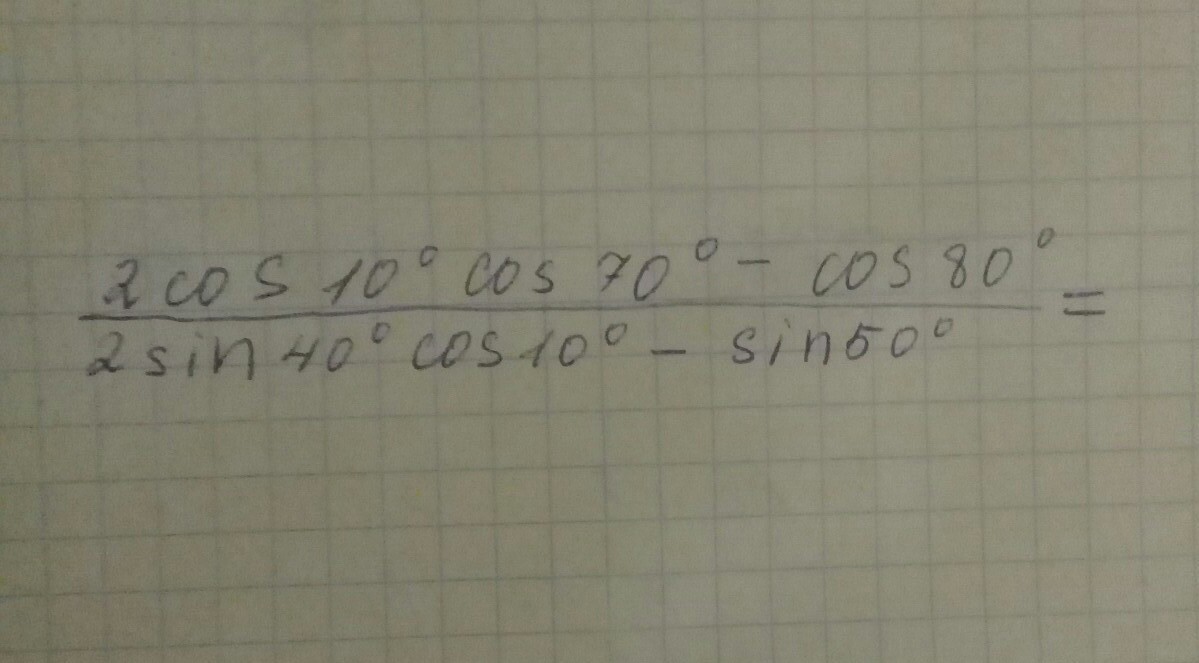 2 cos 10° cos 70° - cos 80° =
2 sin 40° cos 10° - sin 50°